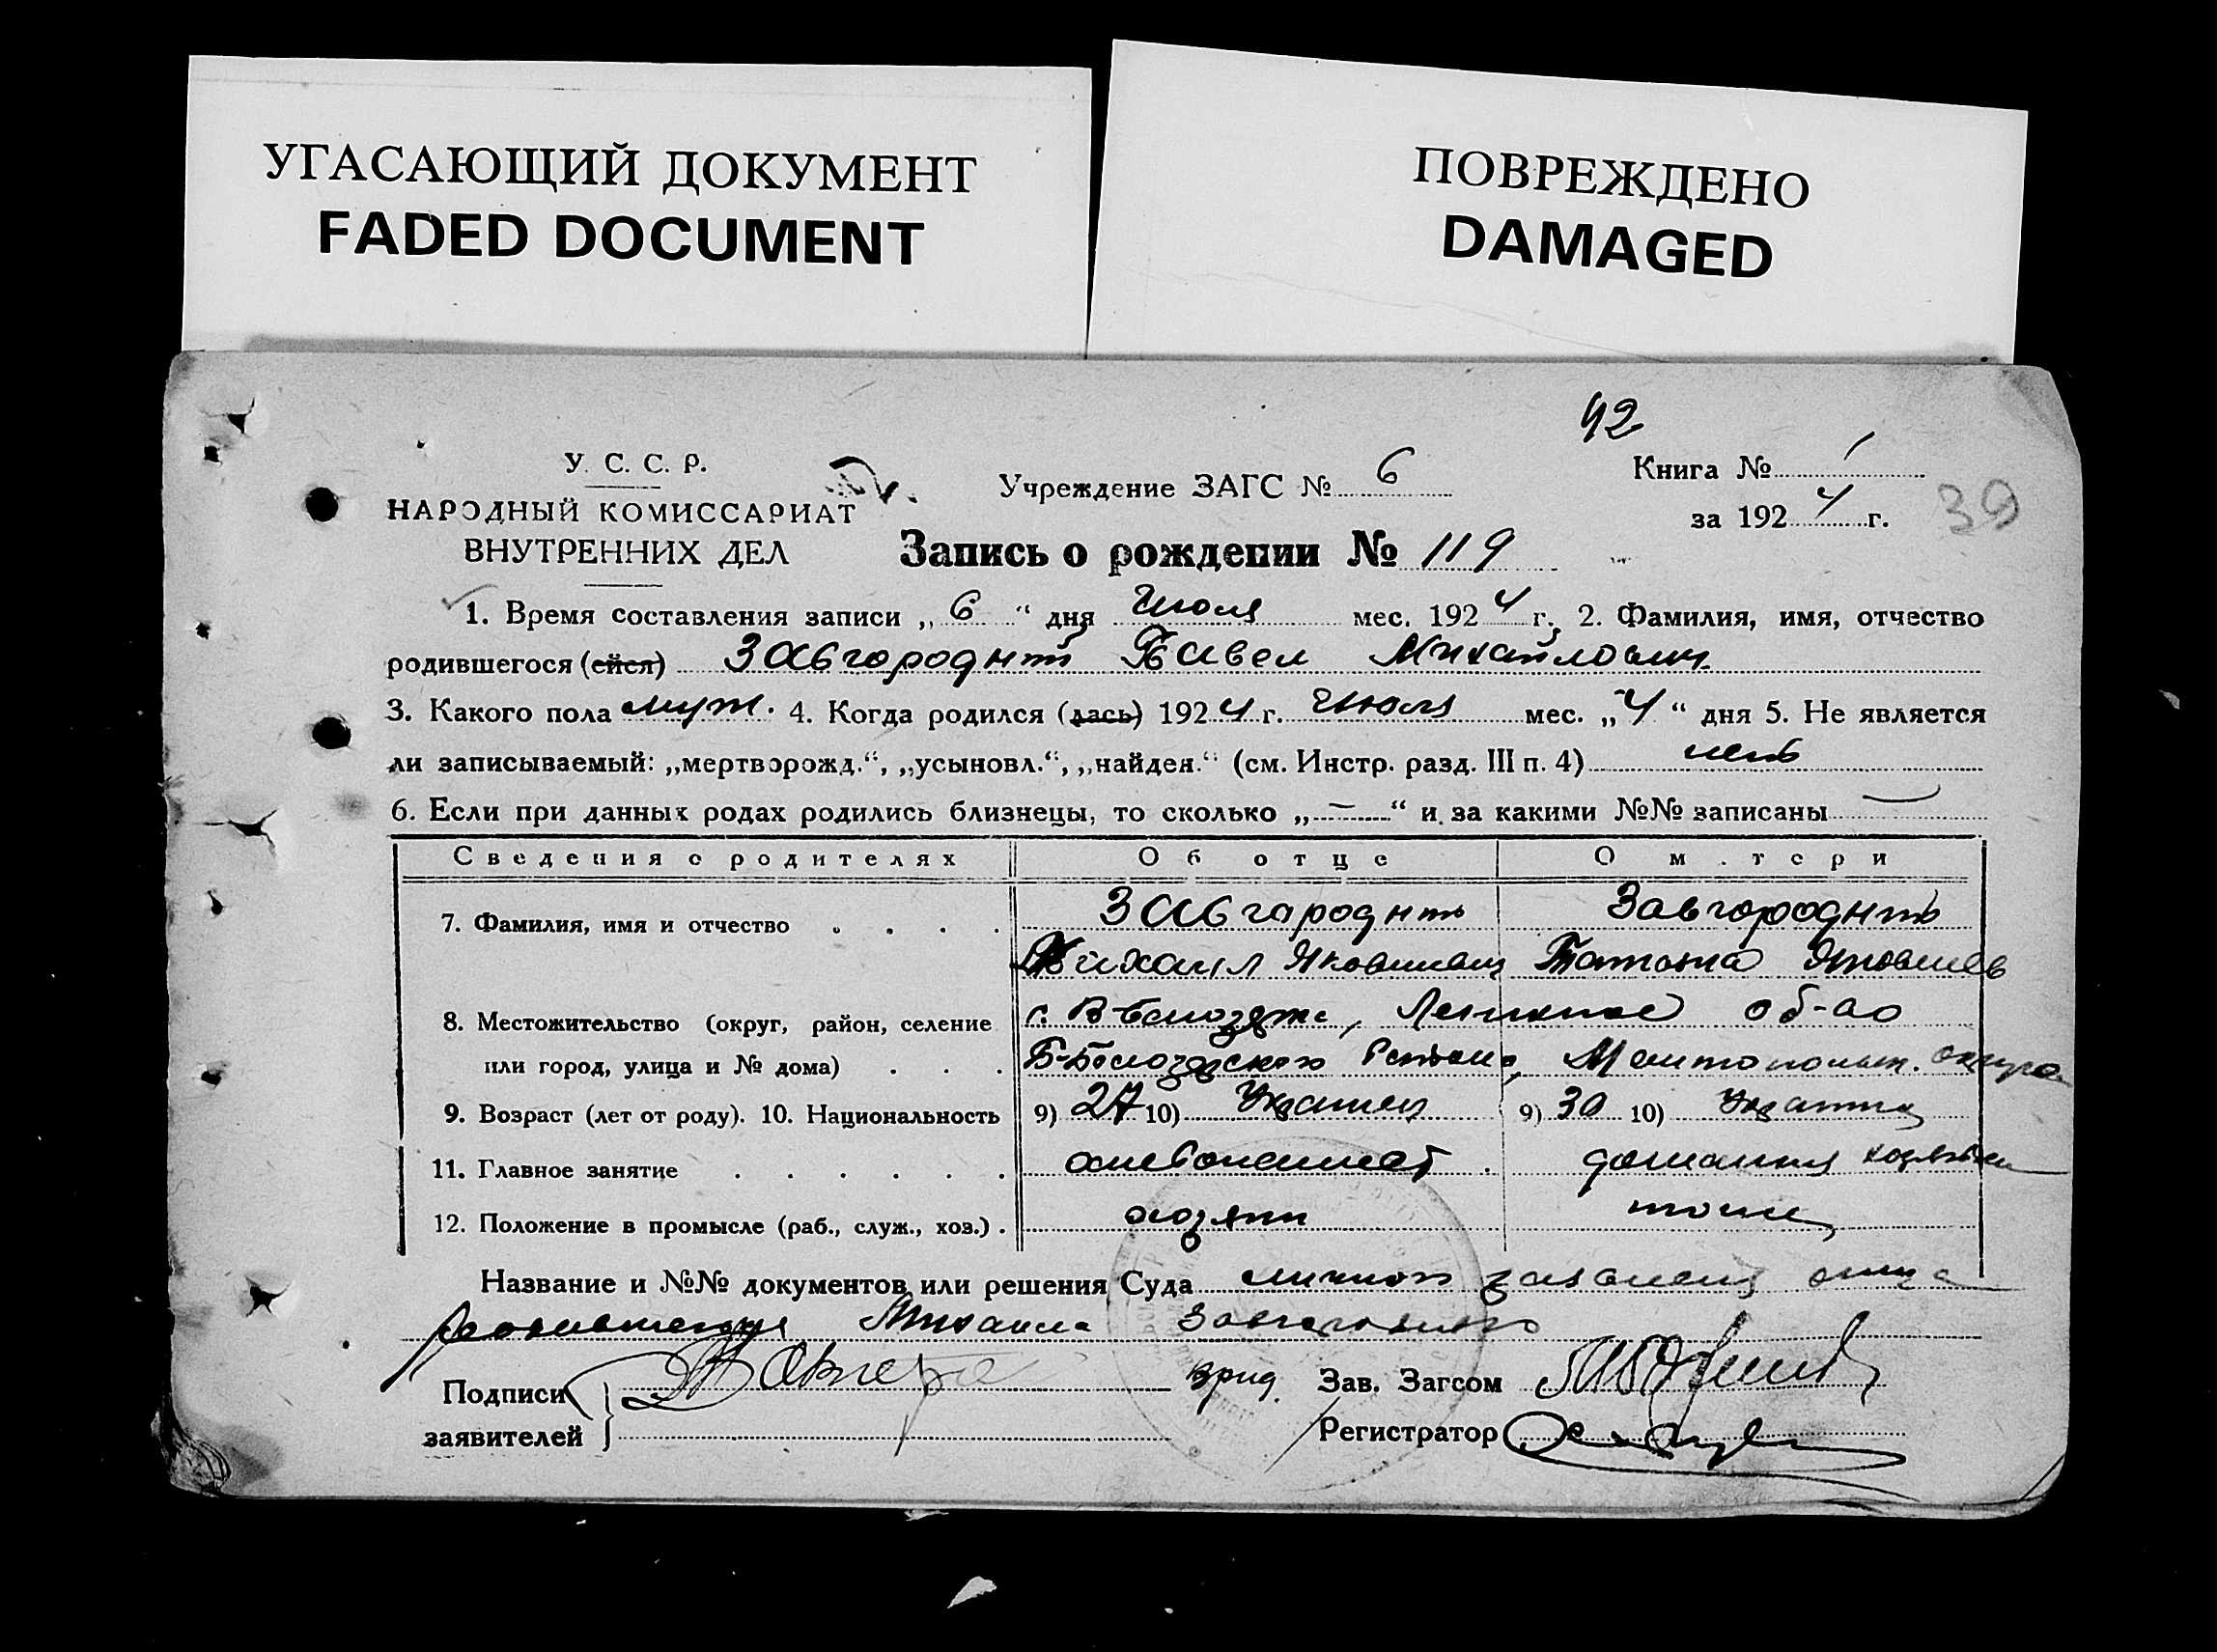 УГАСАЮЩИЙ ДОКУМЕНТ
FADED DOCUMENT
ПОВРЕЖДЕНО
DAMAGED
42
У. С. С. Р.
НАРОДНЫЙ КОМИССАРИАТ
ВНУТРЕННИХ ДЕЛ
Учреждение ЗАГС № 6
Книга № 1
за 1924 г.
39
Запись о рождении № 119
1. Время составления записи „6“ дня Июля мес. 1924 г. 2. Фамилия, имя, отчество
родившегося (ейся) Завгородний Павел Михайлович
3. Какого пола муж. 4. Когда родился (лась) 1924 г. Июля мес. „4“ дня 5. Не является
ли записываемый: „мертворожд.“, „усыновл.“, „найден.“ (см. Инстр. разд. III п. 4) нет
6. Если при данных родах родились близнецы, то сколько „—“ и за какими №№ записаны —
Сведения о родителях Об отце О м.тери
7. Фамилия, имя и отчество Завгородний Завгородняя
Михаил Яковлевич Татьяна
8. Местожительство (округ, район, селение с. об-во
или город, улица и № дома) Б-Белозерского Района, Мелитопольск. округа
9. Возраст (лет от роду). 10. Национальность 9) 27 10) Украинец 9) 30 10) Украинка
11. Главное занятие хлебопашест. домашняя хозяйка
12. Положение в промысле (раб., служ., хоз.) хозяин
Название и №№ документов или решения Суда личного заявления отца
родившегося Михаила Завгороднего
Подписи
заявителей
врид. Зав. Загсом
Регистратор